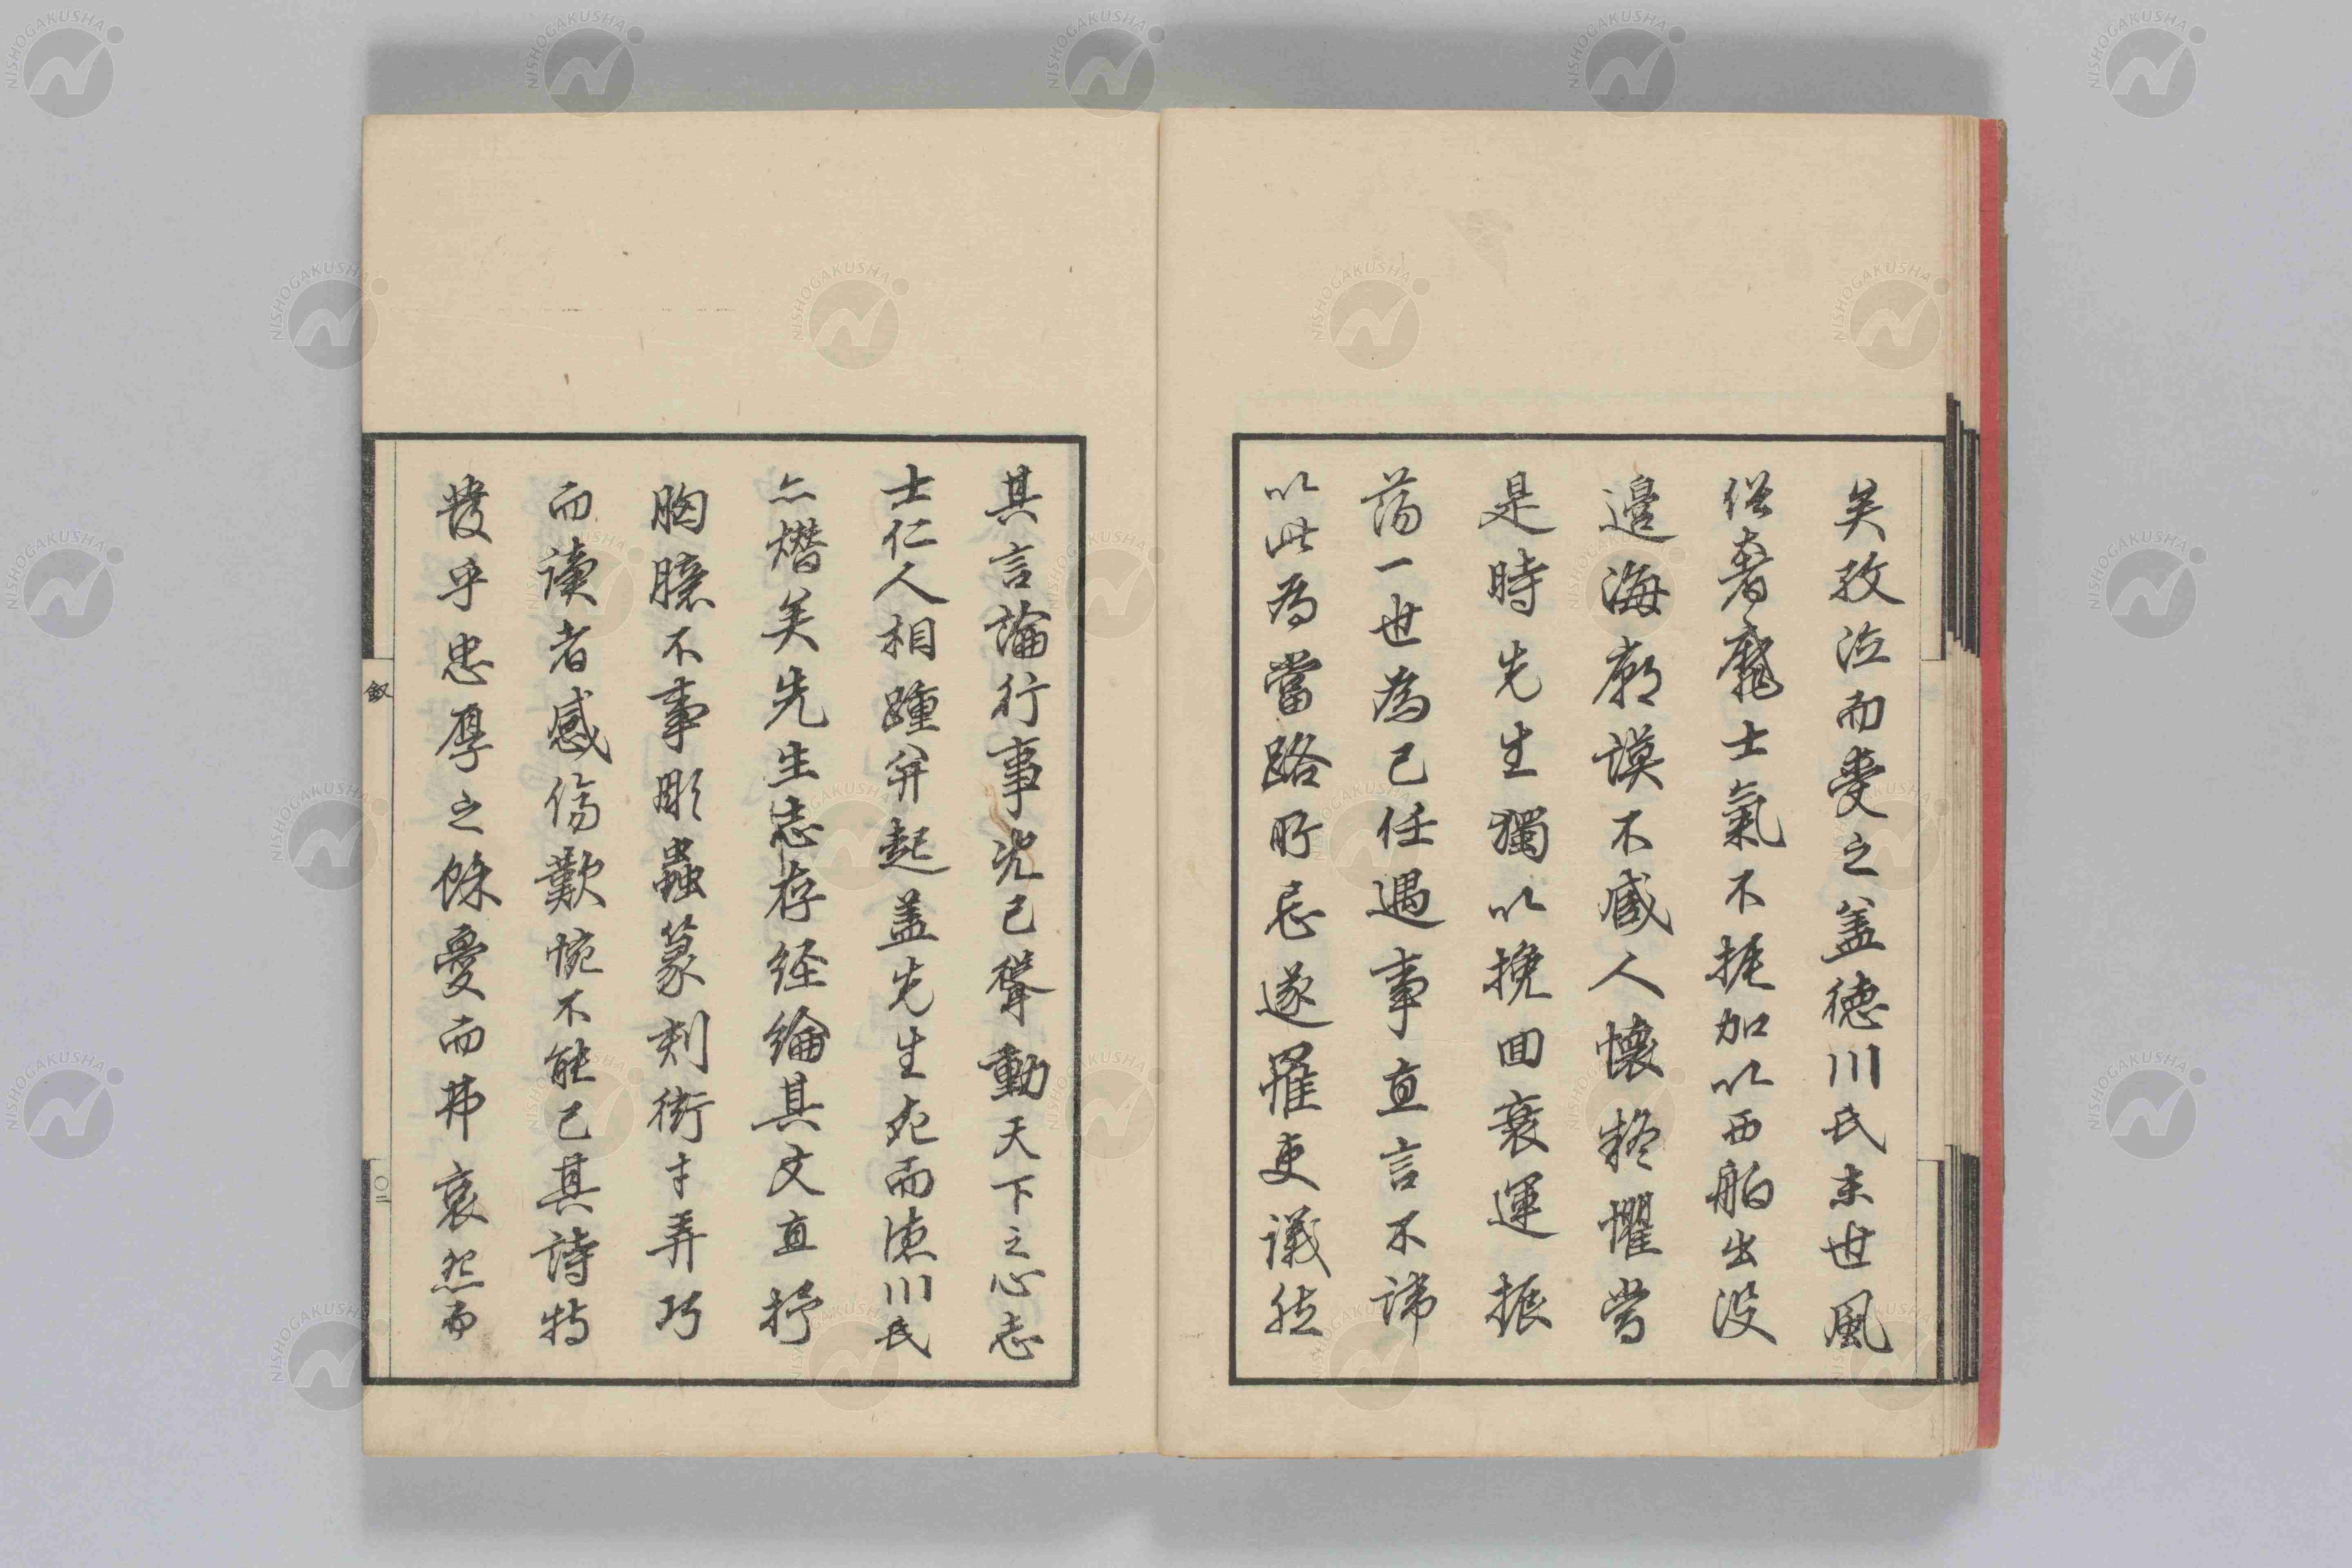 矣孜泣而受之盖徳川氏末世風
俗奢靡士氣不振加以西舶出没
邉海廟謨不臧人懐疑懼當
是時先生獨以挽回衰運振
蕩一世為己任遇事直言不諱
以此為當路所忌遂罹吏議然
其言論行事光已聳動天下之心志
士仁人相踵并起盖先生死而徳川氏
亦熸矣先生志存経綸其文直抒
胸臆不事彫蟲篆刻衒才弄巧
而讀者感傷歎惋不能已其詩特
發乎忠厚之餘憂而弗哀怨而
叙
二
NISHOGAKUSHA